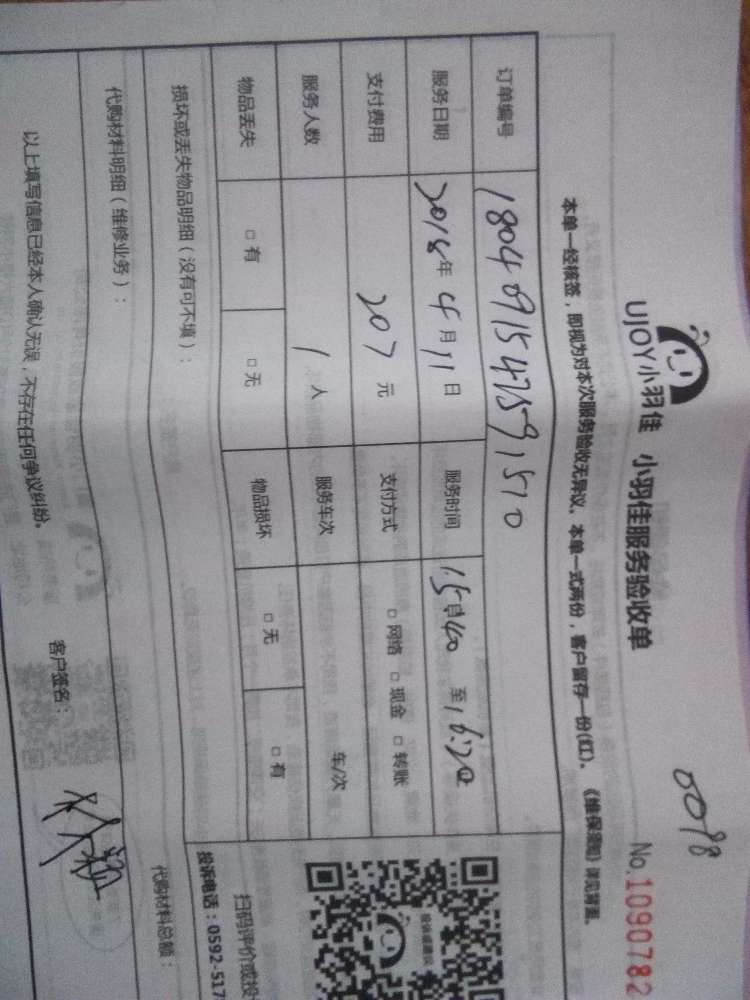 0098
UJOY小羽佳 小羽佳服务验收单 No.1090782
本单一经核签，即视为对本次服务验收无异议。本单一式两份，客户留存一份(红)。《维保须知》详见背面。
订单编号 1804091547591510
服务日期 2018年4月11日 服务时间 15:40至16:20
支付费用 207元 支付方式 □网络 □现金 □转账
服务人数 1人 服务车次 车/次
物品丢失 □有 □无 物品损坏 □无 □有
损坏或丢失物品明细（没有可不填）：
代购材料明细（维修业务）： 代购材料总额：
以上填写信息已经本人确认无误，不存在任何争议纠纷。 客户签名：
扫码评价或投
投诉电话：0592-517